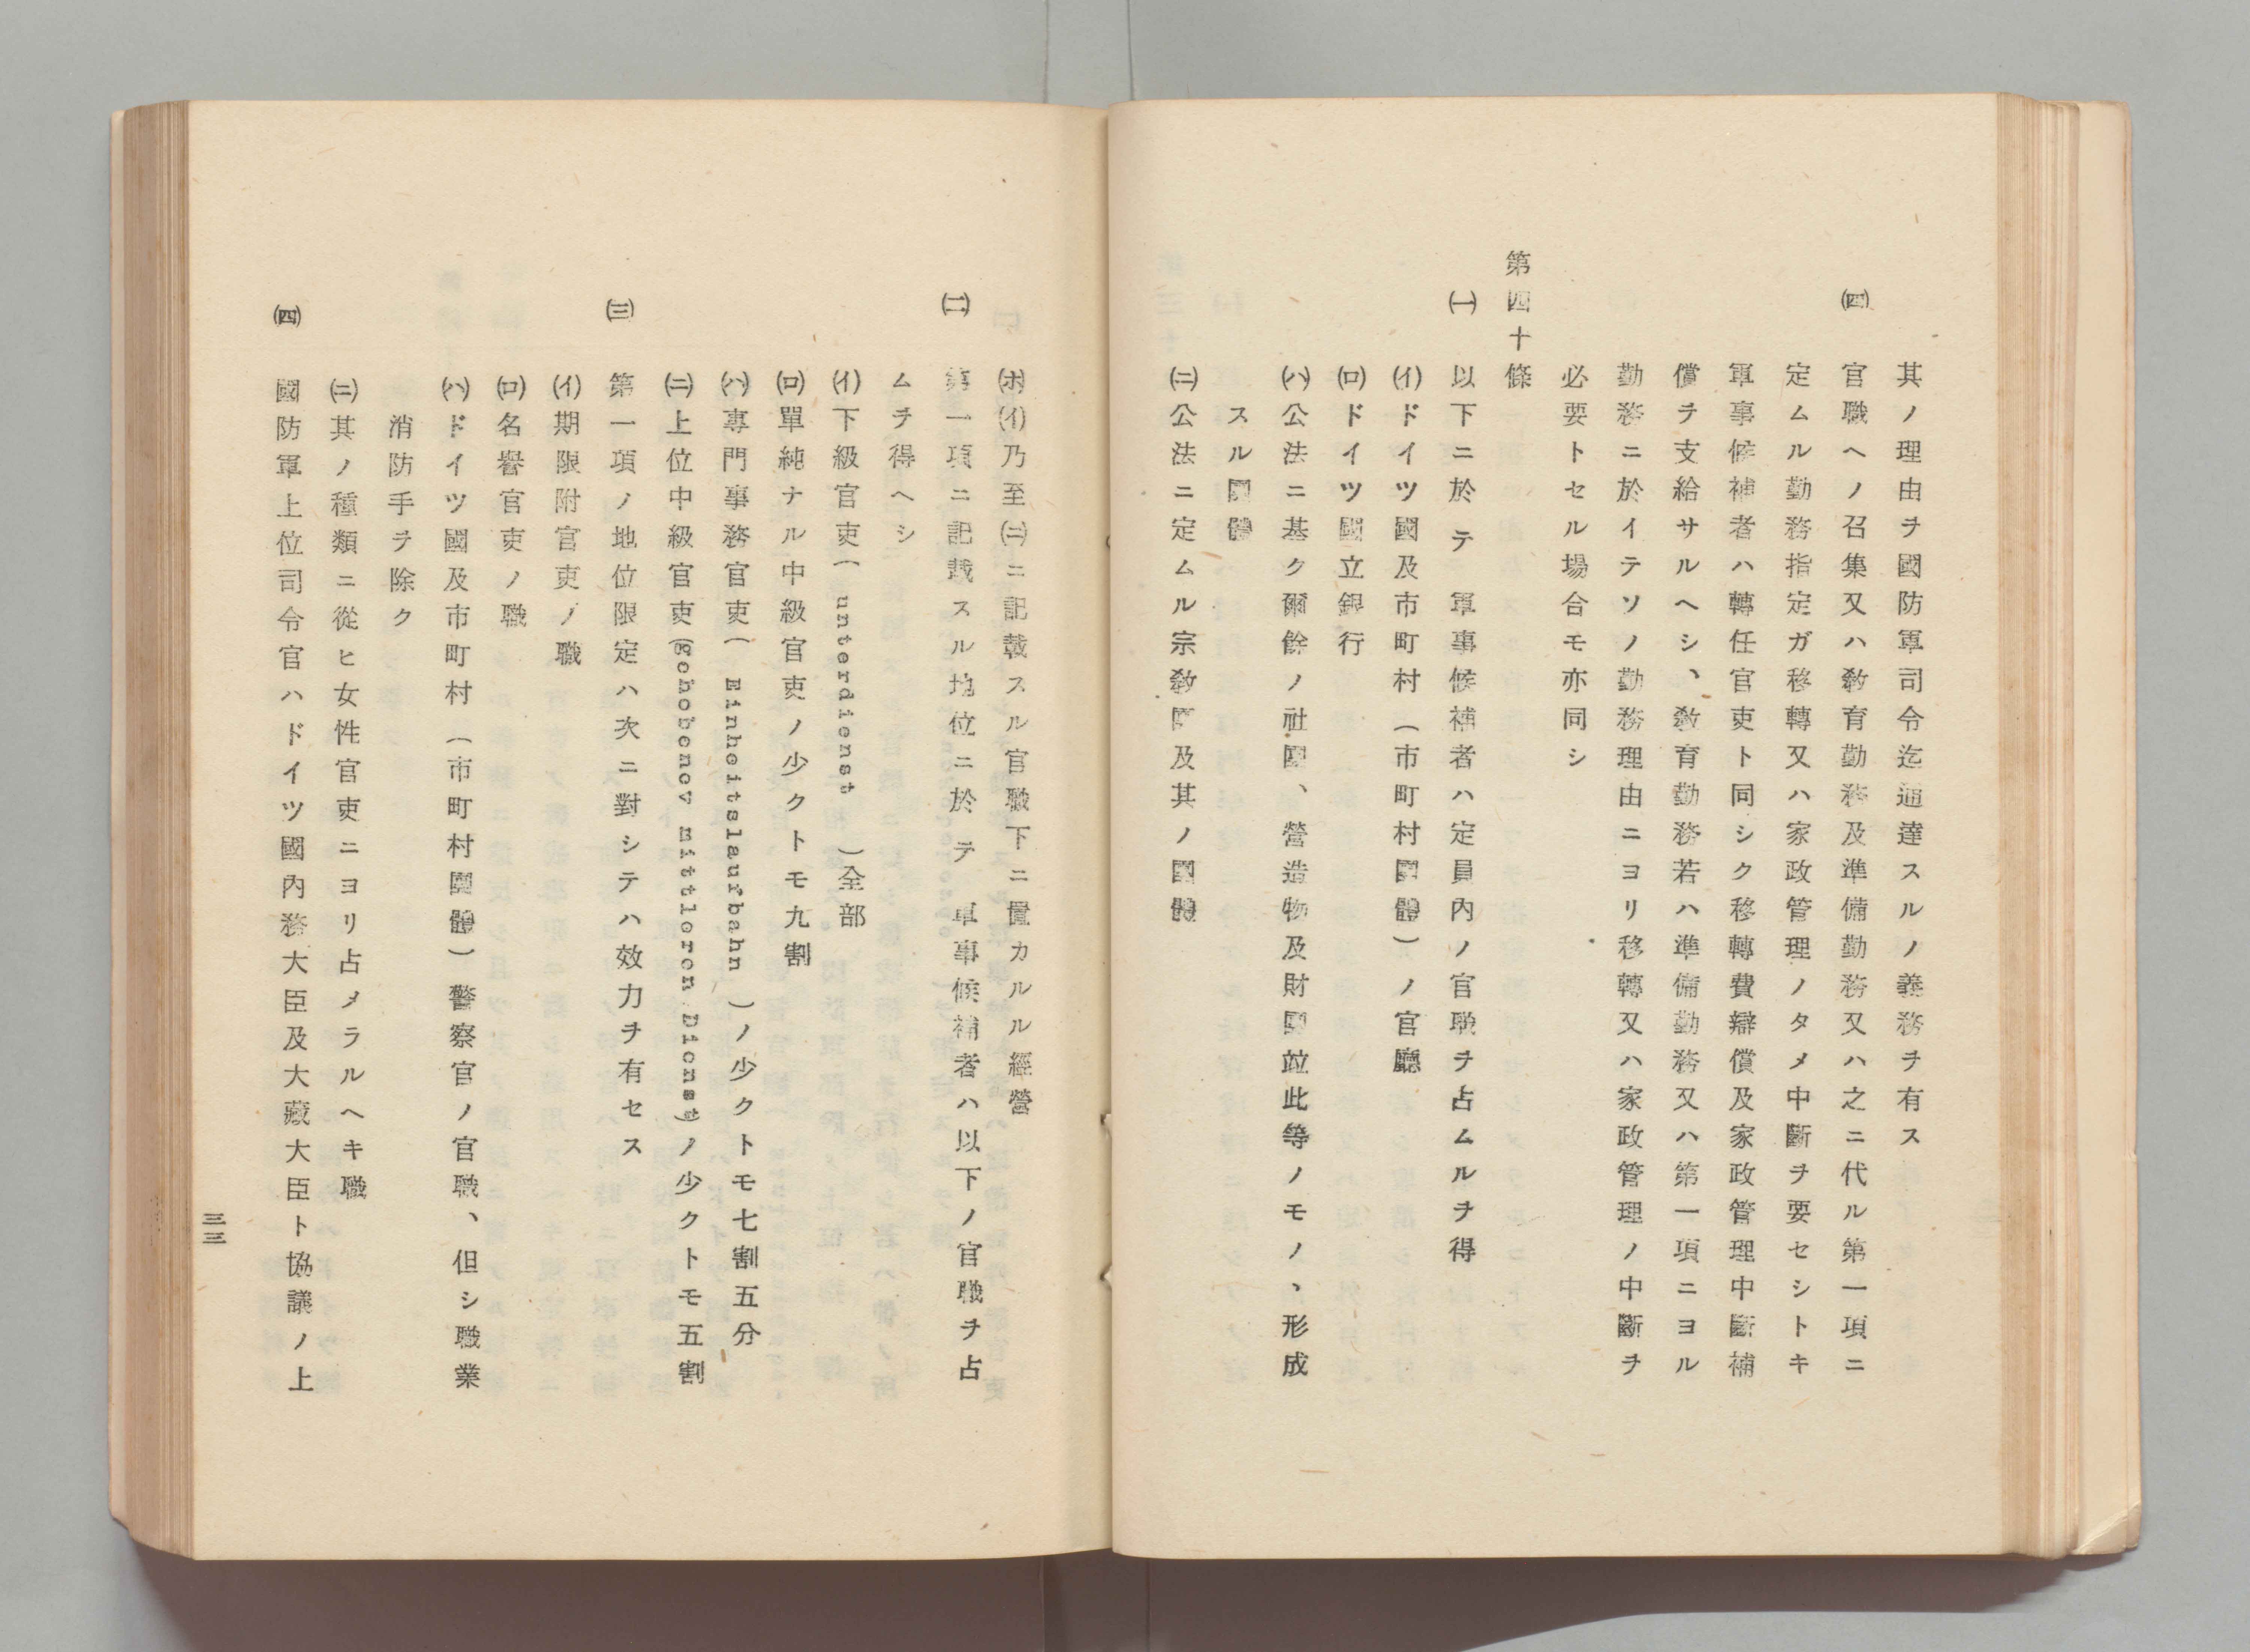 其ノ理由ヲ國防軍司令迄通達スルノ義務ヲ有ス
㈣ 官職ヘノ召集又ハ敎育勤務及準備勤務又ハ之ニ代ル第一項ニ
定ムル勤務指定ガ移轉又ハ家政管理ノタメ中斷ヲ要セシトキ
軍事候補者ハ轉任官吏ト同シク移轉費辯償及家政管理中斷補
償ヲ支給サルヘシ、敎育勤務若ハ準備勤務又ハ第一項ニヨル
勤務ニ於イテソノ勤務理由ニヨリ移轉又ハ家政管理ノ中斷ヲ
必要トセル場合モ亦同シ
第四十條
㈠ 以下ニ於テ 軍事候補者ハ定員內ノ官職ヲ占ムルヲ得
(イ)ドイツ國及市町村(市町村團體)ノ官廳
(ロ)ドイツ國立銀行
(ハ)公法ニ基ク爾餘ノ社團、營造物及財團竝此等ノモノヽ形成
スル團體
(ニ)公法ニ定ムル宗敎團及其ノ團體
(ホ)(イ)乃至(ニ)ニ記載スル官職下ニ置カルル經營
㈡ 第一項ニ記載スル地位ニ於テ 軍事候補者ハ以下ノ官職ヲ占
ムヲ得ヘシ
(イ)下級官吏( unterdienst )全部
(ロ)單純ナル中級官吏ノ少クトモ九割
(ハ)專門事務官吏( Einheitslaufbahn )ノ少クトモ七割五分
(ニ)上位中級官吏(gehobenev mittleren Dienst)ノ少クトモ五割
㈢ 第一項ノ地位限定ハ次ニ對シテハ效力ヲ有セス
(イ)期限附官吏ノ職
(ロ)名譽官吏ノ職
(ハ)ドイツ國及市町村(市町村團體)警察官ノ官職、但シ職業
消防手ヲ除ク
(ニ)其ノ種類ニ從ヒ女性官吏ニヨリ占メラルヘキ職
㈣ 國防軍上位司令官ハドイツ國內務大臣及大藏大臣ト協議ノ上
三三